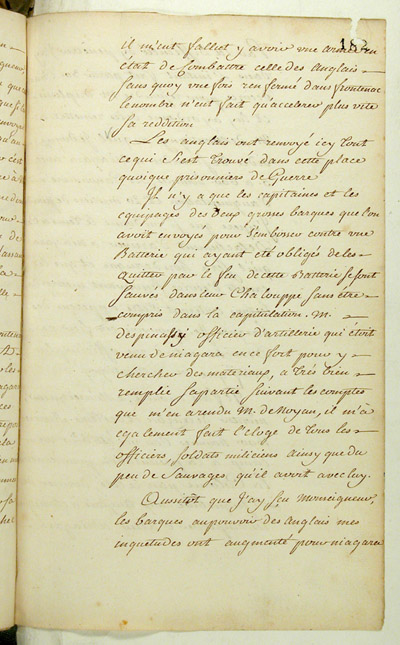 183
il m'eut fallut y avoir une armée en
état de Combattre celle des anglais
sans quoy une fois renfermé dans frontenac
le nombre n'eut fait qu'accelerer plus vite
sa reddition
Les anglais ont renvoyé icy tout
ce qui s'est trouvé dans cette place
quoique prisonniers de Guerre
Il n'y a que les capitaines et les
équipages des deux grosses barques que l'on
avoit envoyés pour s'embosser contre une
Batterie qui ayant été obligés de les
quitter par le feu de cette Batterie se sont
sauvés dans leur Chalouppe sans être
compris dans la capitulation. M.
despinassy officier d'artillerie qui étoit
venu de niagara en ce fort pour y
chercher des materiaux, a très bien
remplie sa partie suivant les comptes
que m'en a rendu M. de Noyan, il m'a
egalement fait l'éloge de tous les
officiers, soldats miliciens ainsy que du
peu de Sauvages qu'il avoit avec luy.
Aussitôt que j'ay sçu Monseigneur,
les barques au pouvoir des anglais mes
inquietudes ont augmenté pour niagara